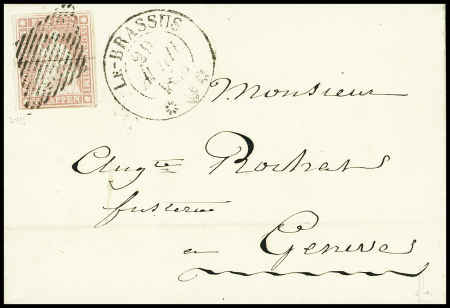 LE-BRASSUS
RAPPEN
Monsieur
Augte Rochat
fusterie
a Geneve